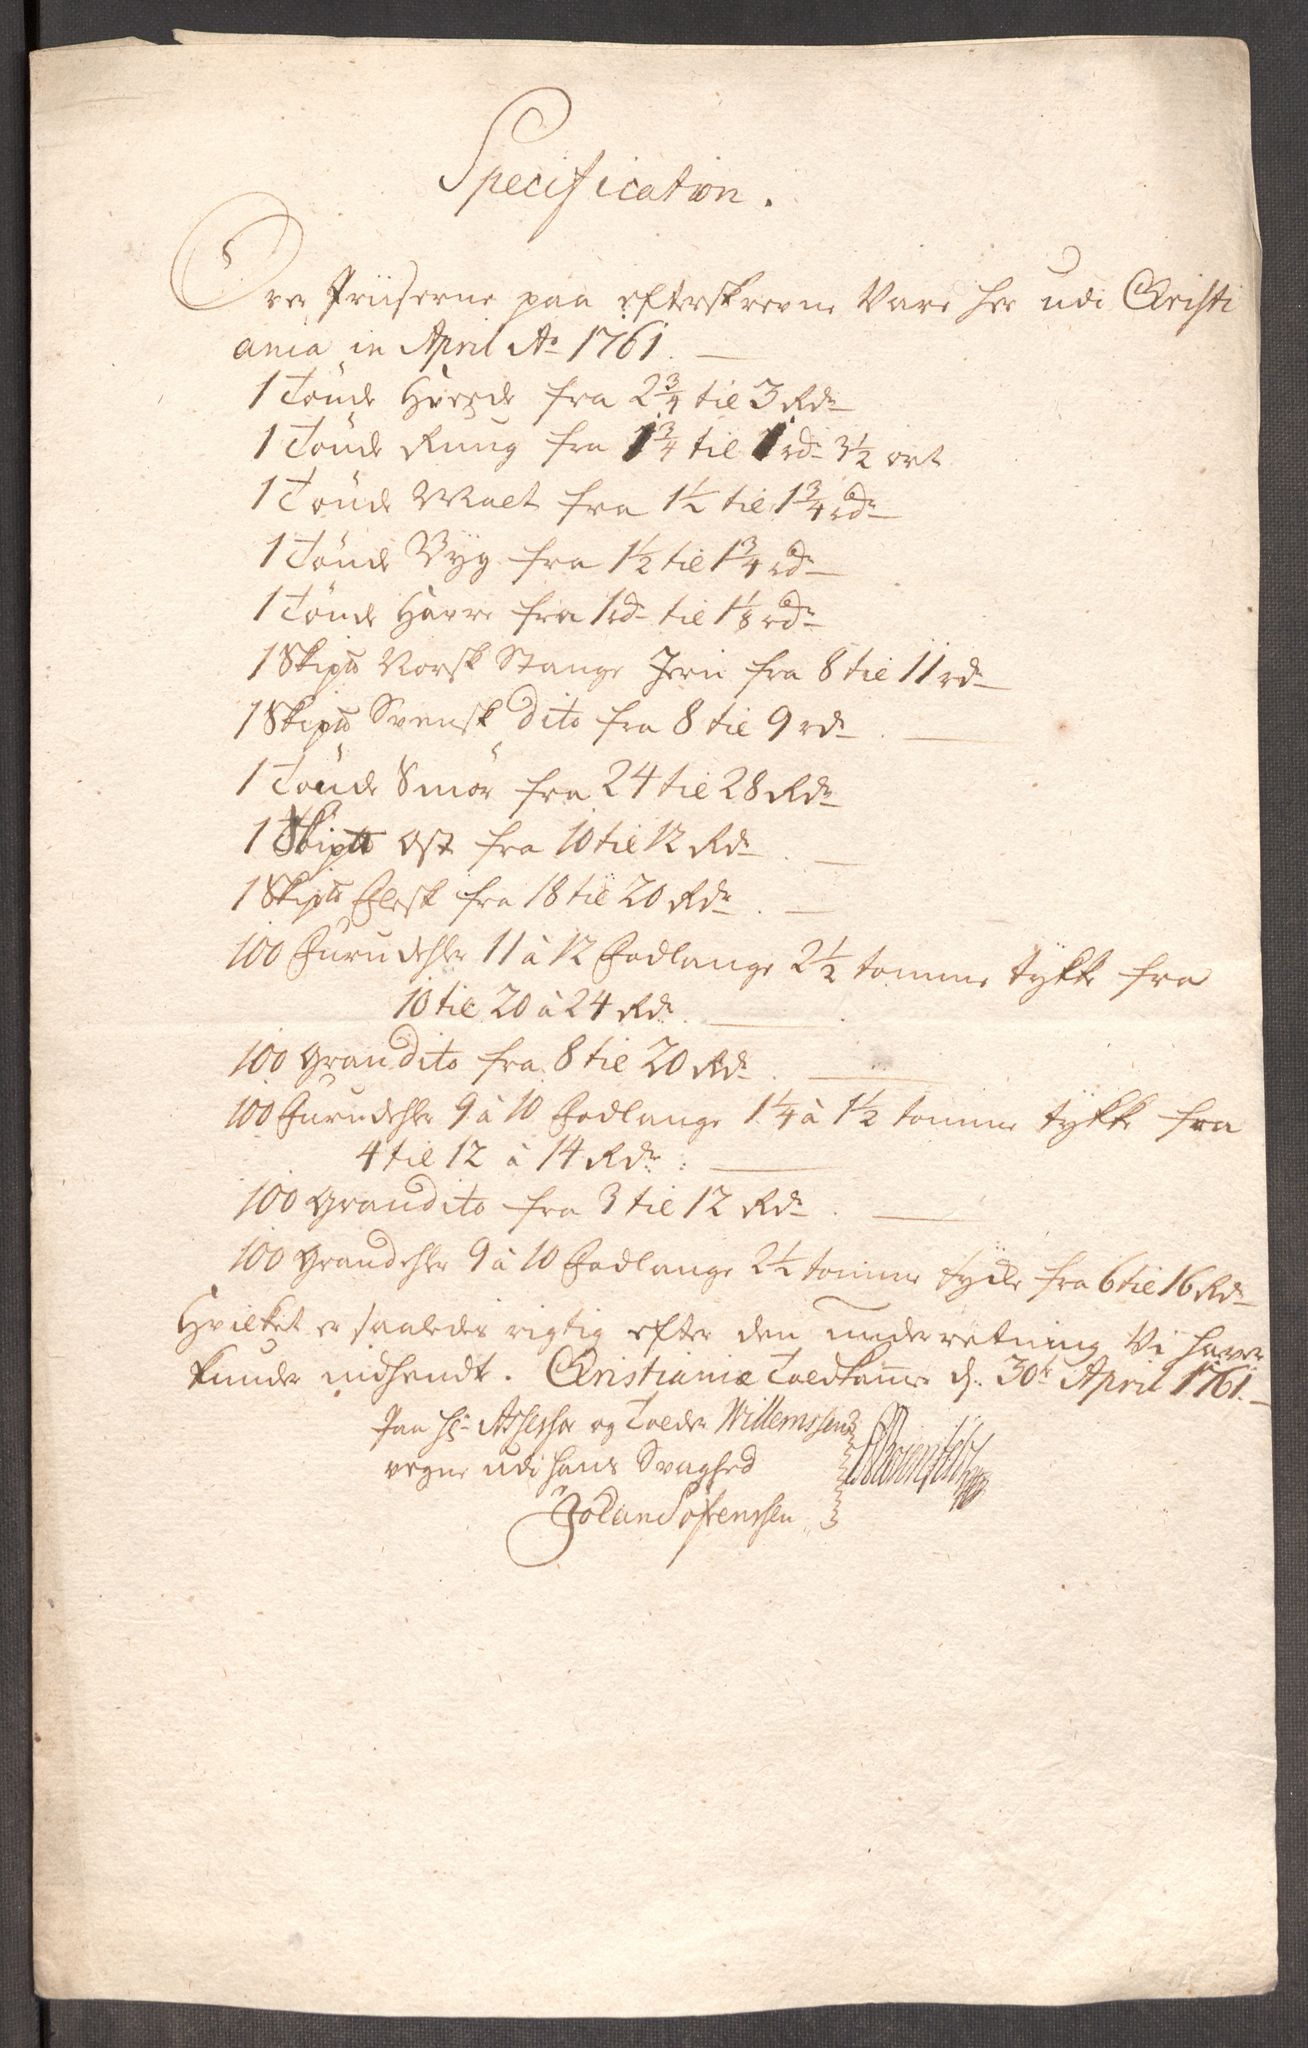 Specification.
Over Priiserne paa efterskrevne Vare her udi Christi
ania in April Ao 1761.
1 Tønde Hvede fra 2 3/4 til 3 Rdr
1 Tønde Rug fra 1 3/4 til 1 rdr 3 1/2 ort
1 Tønde Malt fra 1 1/2 til 1 3/4 rdr
1 Tønde Byg fra 1 1/2 til 1 3/4 rdr
1 Tønde Havre fra 1 rdr til 1 1/8 rdr
1 Skip℔ Norsk Stange Jern fra 8 til 11 rdr
1 Skip℔ Svensk dito fra 8 til 9 rdr.
1 Tønde Smør fra 24 til 28 Rdr
1 Skip℔ Ost fra 10 til 12 Rdr.
1 Skip℔ Flesk fra 18 til 20 Rdr.
100 Furudehler 11 à 12 Fodlange 2 1/2 tomme tykke fra
10 til 20 à 24 Rdr.
100 Gran dito fra 8 til 20 Rdr.
100 Furudehler 9 à 10 Fodlange 1 1/4 à 1 1/2 tomme tykke fra
4 til 12 à 14 Rdr.
100 Gran dito fra 3 til 12 Rdr.
100 Grandehler 9 à 10 Fodlange 2 1/2 tomme tycke fra 6 til 16 Rdr
Hvilket er saaledes rigtig efter den underretning Vi haver
kunde indhendt. Christianiæ Toldkamer d. 30te April 1761.
Paa Hr Assessor og Tolder Willemssens
vegne udi hans Svaghed
Johan Sørenssen